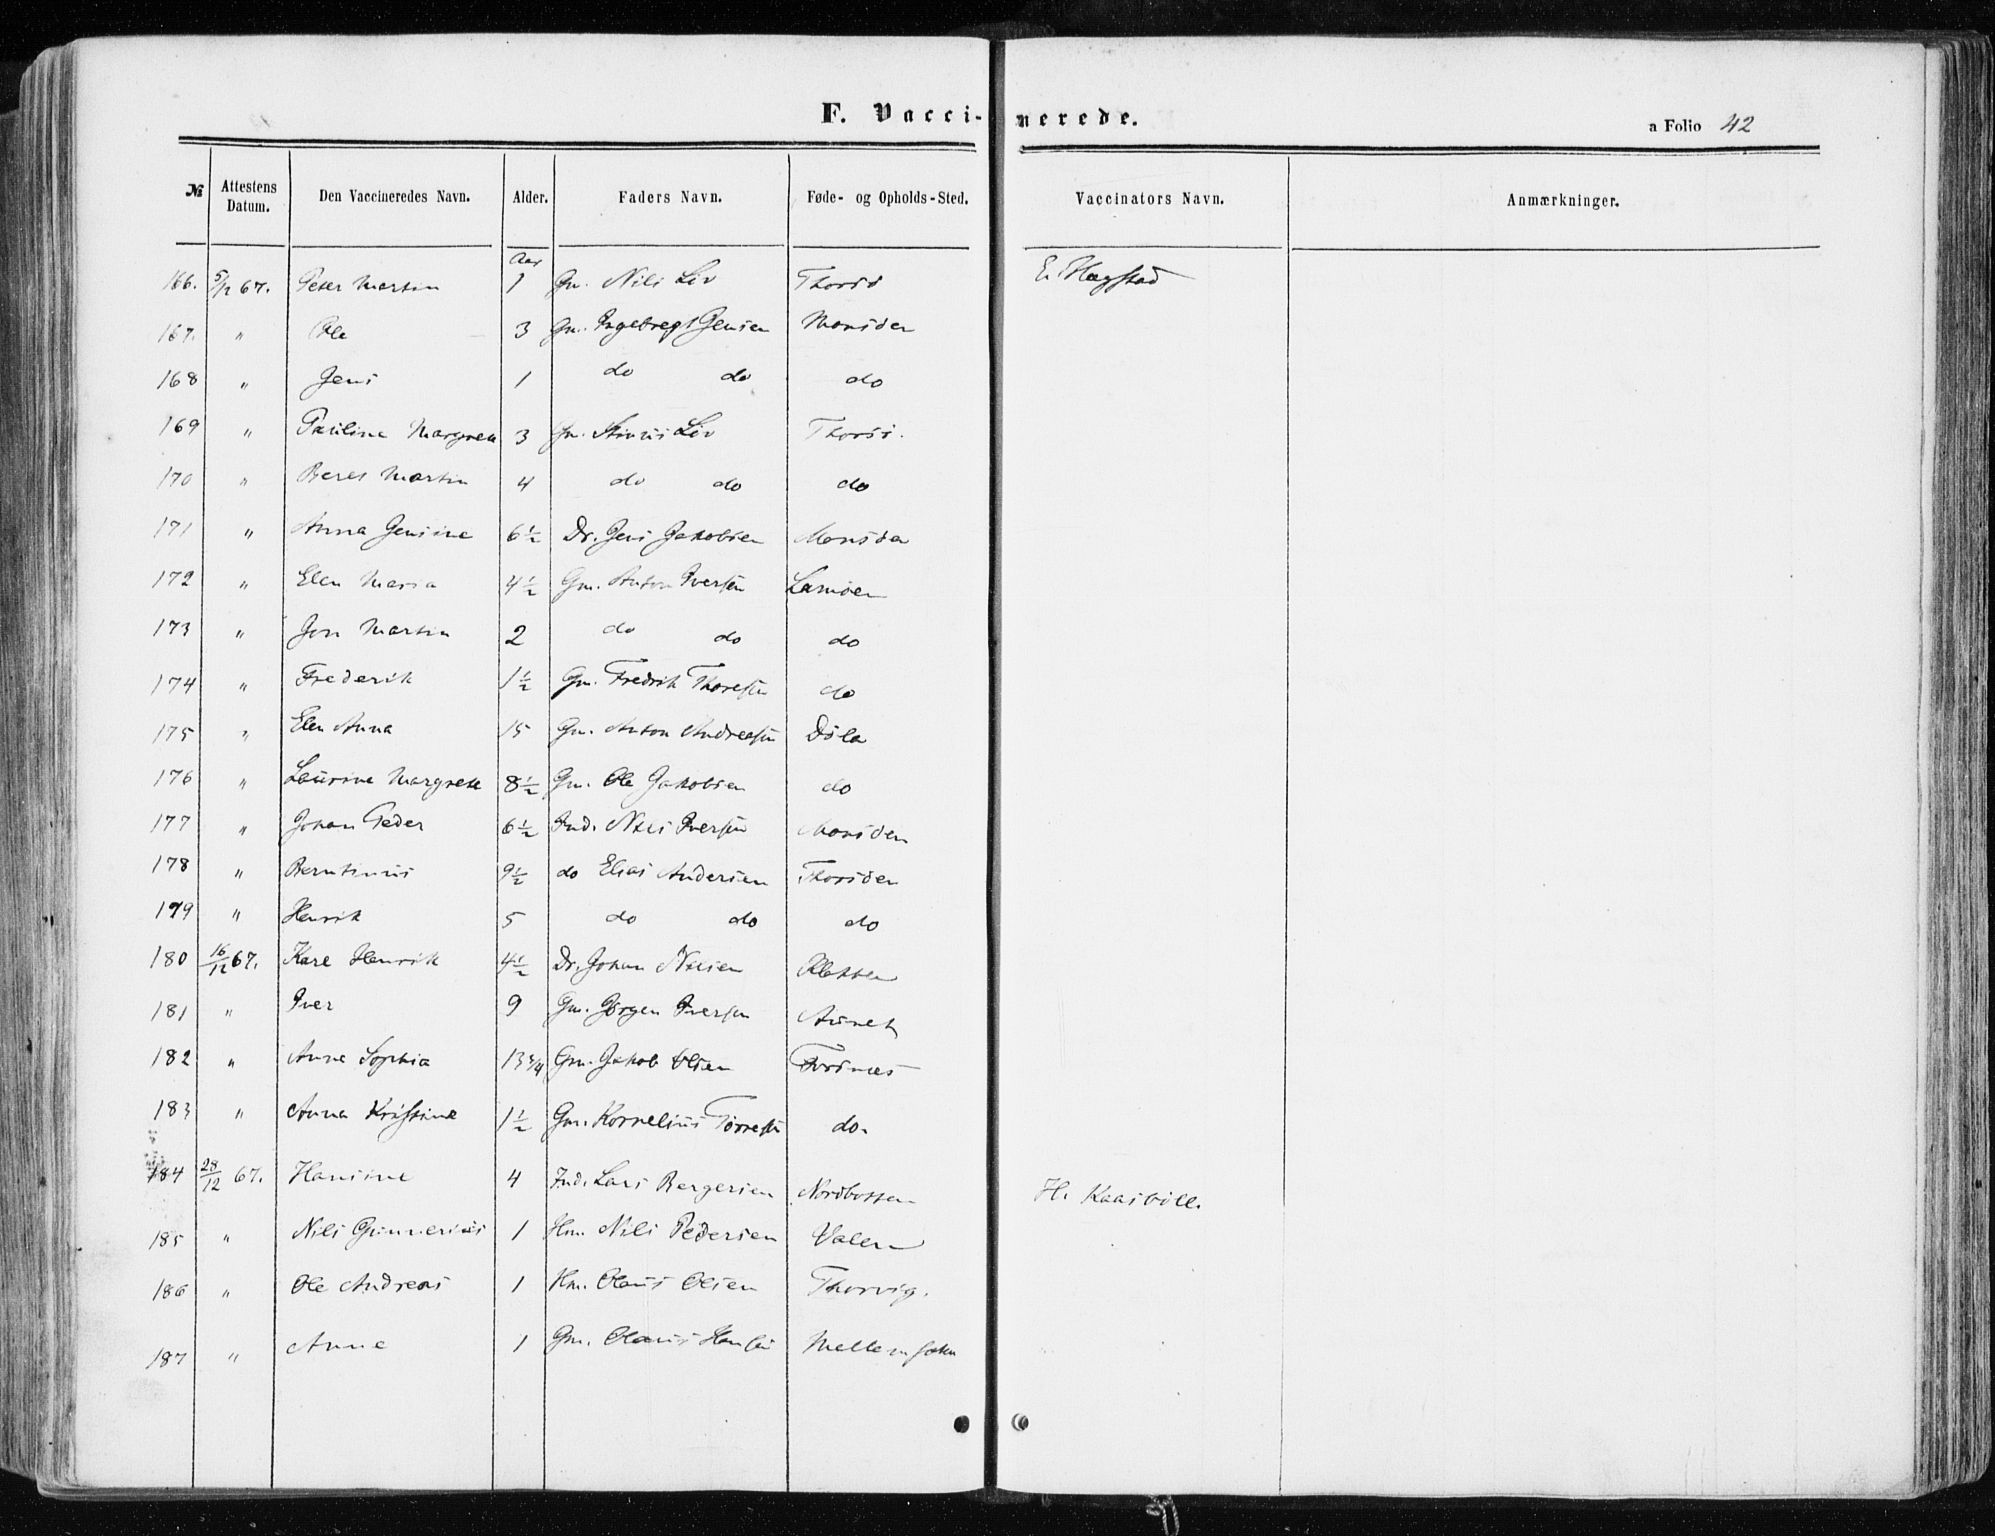 F. Vaccinerede.
a Folio 42
№ Attestens Datum. Den Vaccineredes Navn. Alder. Faders Navn. Føde- og Opholds-Sted. Vaccinators Navn. Anmærkninger.
Aar
166. 5/12 67. Peter Martin 1 Gm. Nils Liv E. Hagstad
167. " Ole 3 Gm. Ingebregt Jensen
168 " Jens 1 do do do
169 " Pauline Margrete 3 Gm. Liv
170 " Martin 4 do do do
171 " Anna Jensine 6½ Dr. Jens Jakobsen
172 " Elen Maria 4½ Gm. Anton Iversen
173 " Jon Martin 2 do do do
174 " Frederik 1½ Gm. Fredrik Thoresen do
175 " Elen Anna 15 Gm. Anton Andreasen Døla
176 " Laurine Margrete 8½ Gm. Ole Jakobsen do
177 " Johan Peder 6½ Ind. Nils Iversen
178 " Berntinus 9½ do Elias Andersen
179 " Henrik 5 do do do
180 16/12 67. Karl Henrik 4½ Dr. Johan Nilsen Kletten
181 " Iver 9 Gm. Jørgen Iversen Aunet
182 " Anne Sophia 13¾ Gm. Jakob Olsen Forsnes
183 " Anna Kristine 1½ Gm. Kornelius Torresen do.
184 28/12 67. Hansine 4 Ind. Lars Bergersen Nordbotten H. Kaasbøll.
185 " Nils Gunnerius 1 Hm. Nils Pedersen Valen
186 " Ole Andreas 1 Hm. Olaus Olsen Thorvig.
187 " Anne 1 Gm. Olaus Hansen